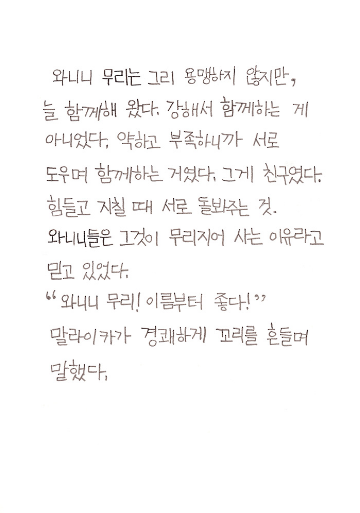 와니니 무리는 그리 용맹하지 않지만,
늘 함께해 왔다. 강해서 함께하는 게
아니었다. 약하고 부족하니까 서로
도우며 함께하는 거였다. 그게 친구였다.
힘들고 지칠 때 서로 돌봐주는 것.
와니니들은 그것이 무리지어 사는 이유라고
믿고 있었다.
“와니니 무리! 이름부터 좋다!”
말라이카가 경쾌하게 꼬리를 흔들며
말했다.